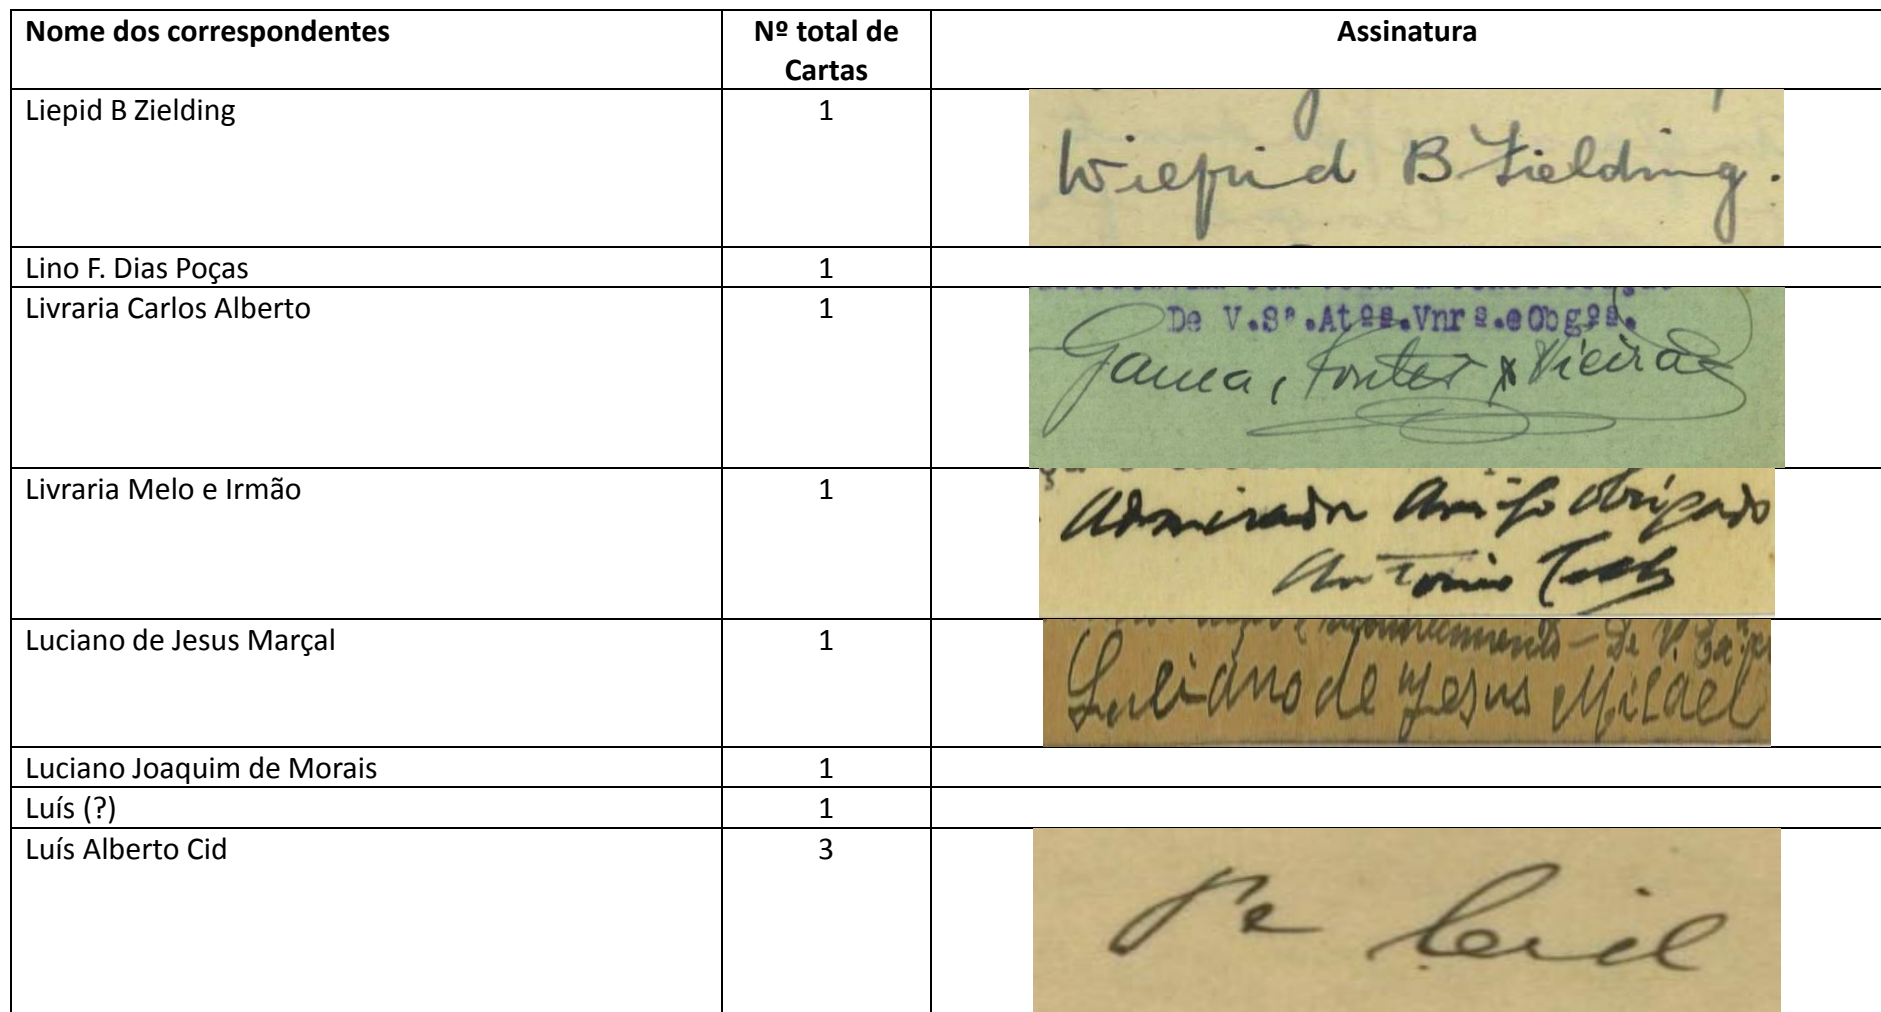 Nome dos correspondentes Nº total de Cartas Assinatura
Liepid B Zielding 1
Wilfrid B Fielding.
Lino F. Dias Poças 1
Livraria Carlos Alberto 1
De V.Sª.Atºs.Vnrº.e Obgºs.
Gama, Fontes & Vieira
Livraria Melo e Irmão 1
Admirador Amigo Obrigado
Antonio
Luciano de Jesus Marçal 1
De V. Exª
de Jesus
Luciano Joaquim de Morais 1
Luís (?) 1
Luís Alberto Cid 3